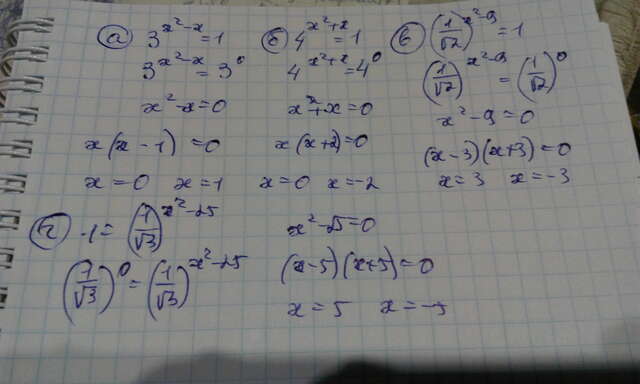 а) 3^{x²-x} = 1
3^{x²-x} = 3^0
x² - x = 0
x(x - 1) = 0
x = 0 x = 1
б) 4^{x²+x} = 1
4^{x²+x} = 4^0
x² + x = 0
x(x+2) = 0
x = 0 x = -2
в) (1/√2)^{x²-9} = 1
(1/√2)^{x²-9} = (1/√2)^0
x² - 9 = 0
(x-3)(x+3) = 0
x = 3 x = -3
г) 1 = (1/√3)^{x²-25}
(1/√3)^0 = (1/√3)^{x²-25}
x² - 25 = 0
(x-5)(x+5) = 0
x = 5 x = -5